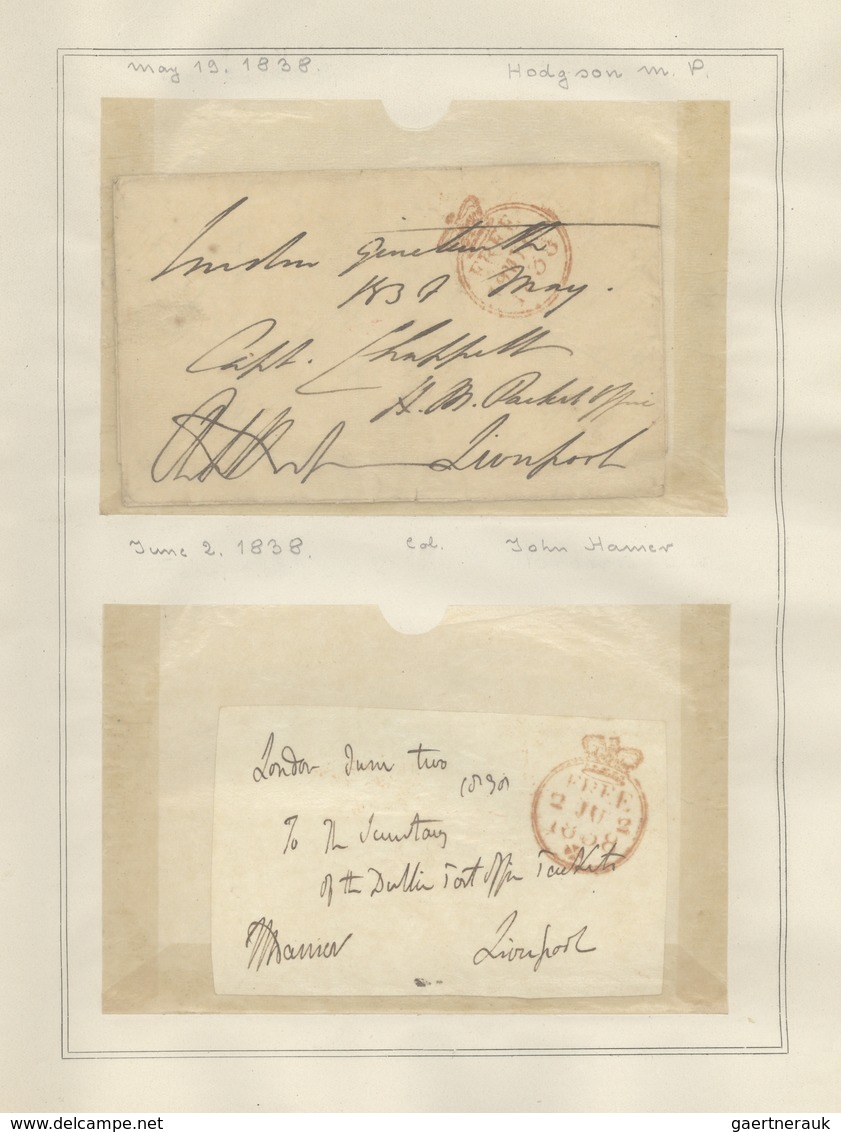 May 19. 1838. Hodgson M. P.
London Nineteenth
1838 May.
FREE
Capt. Chappell
H. M. Packet Office
Liverpool
June 2. 1838. Col. John Hamer
London June two
1838
FREE
2 JU 2
1838
To The Secretary
of the Dublin Post Office Packets
Liverpool
delcampe.net
gaertnerauk